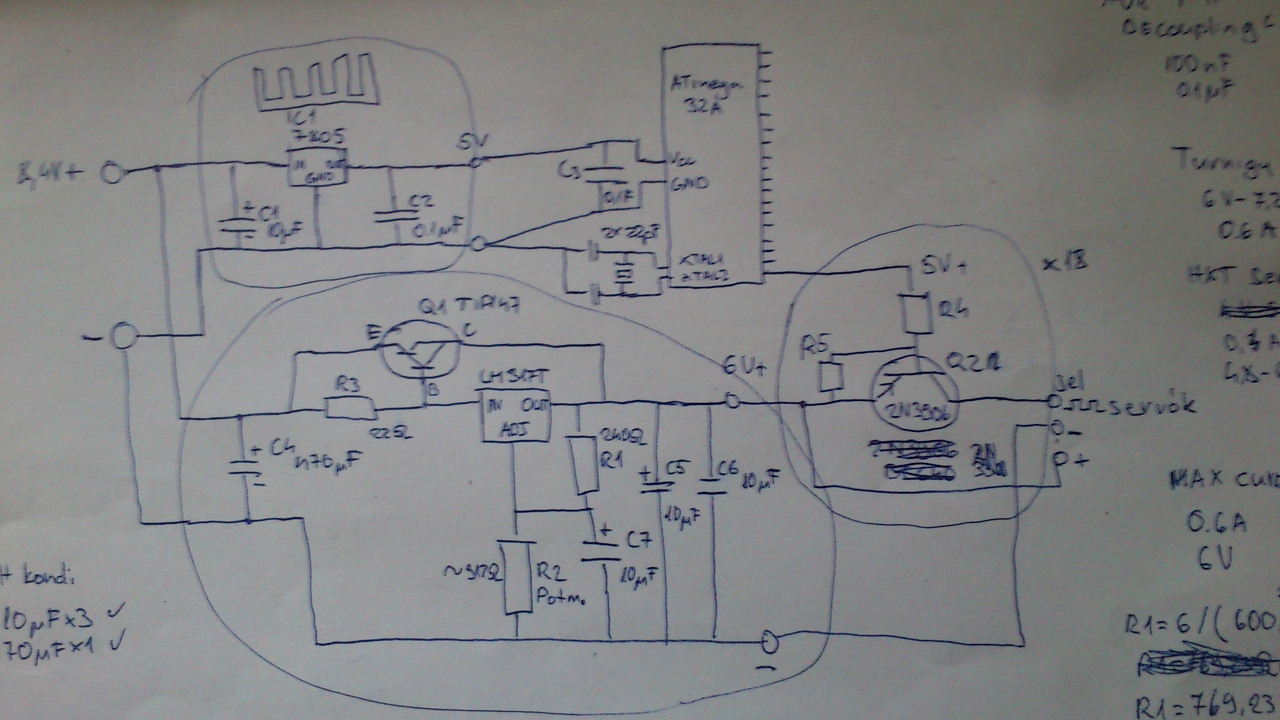 Decoupling C
100nF
0.1µF
IC1
7805
IN OUT
GND
5V
8,4V+
+ C1
10µF
-
C2
0.1µF
C3
0.1F
ATmega
32A
Vcc
GND
2x 22pF
XTAL1
XTAL2
Turnigy
6V-7,2
0.6A
HXT Se
4,8-
-
5V+
x18
R4
R5
Q2
2N3906
Jel
servók
-
+
Q1 TIP147
E
C
B
R3
22Ω
LM317T
IN OUT
ADJ
6V+
+ C4
470µF
-
240Ω
R1
+ C5
10µF
C6
10µF
+
C7
10µF
R2
Potm.
-
MAX curr
0.6A
6V
R1=6/(600
R1=769,23
kondi
10µFx3 ✓
70µFx1 ✓